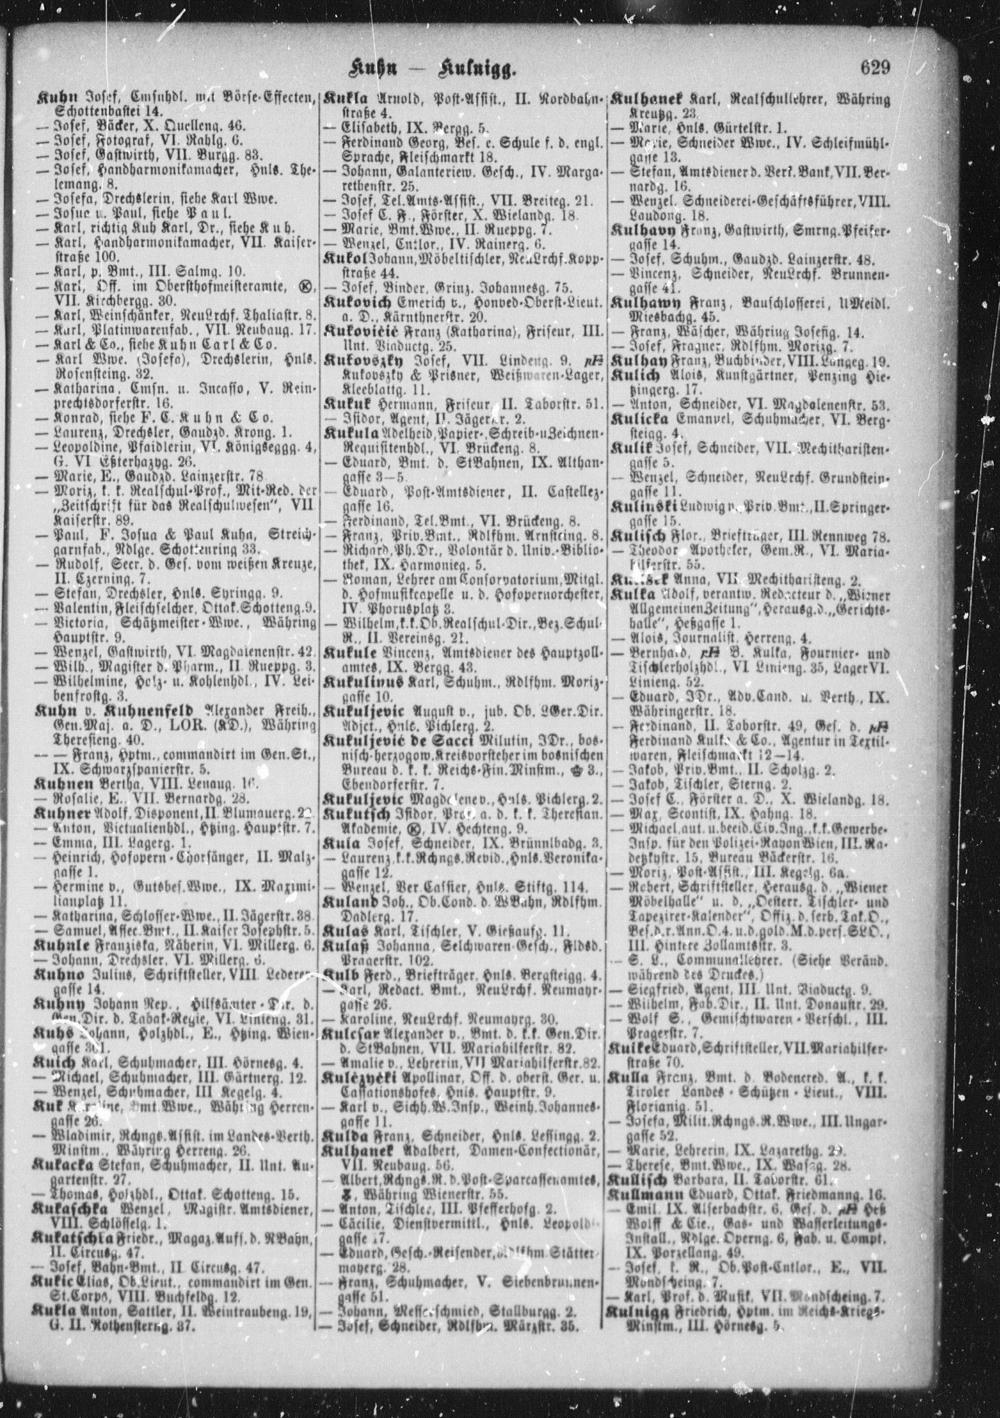 Kuhn — Kulnigg.
629
Kuhn Josef, Cmsnhdl. mit Börse-Effecten,
Schottenbastei 14.
— Josef, Bäcker, X. Quelleng. 46.
— Josef, Fotograf, VI. Rahlg. 6.
— Josef, Gastwirth, VII. Burgg. 83.
— Josef, Handharmonikamacher, Hnls. The-
lemang. 8.
— Josefa, Drechslerin, siehe Karl Wwe.
— Josua u. Paul, siehe Paul.
— Karl, richtig Kuh Karl, Dr., siehe Kuh.
— Karl, Handharmonikamacher, VII. Kaiser-
straße 100.
— Karl, p. Bmt., III. Salmg. 10.
— Karl, Off. im Obersthofmeisteramte, Ⓚ,
VII. Kirchbergg. 30.
— Karl, Weinschänker, NeuLrchf. Thaliastr. 8.
— Karl, Platinwarenfab., VII. Neubaug. 17.
— Karl & Co., siehe Kuhn Carl & Co.
— Karl Wwe. (Josefa), Drechslerin, Hnls.
Rosensteing. 32.
— Katharina, Cmsn. u. Incasso, V. Rein-
prechtsdorferstr. 16.
— Konrad, siehe F. C. Kuhn & Co.
— Laurenz, Drechsler, Gaudzd. Krong. 1.
— Leopoldine, Pfaidlerin, VI. Königseggg. 4,
G. VI Esterhazyg. 26.
— Marie, E., Gaudzd. Lainzerstr. 78
— Moriz, k. k. Realschul-Prof., Mit-Red. der
„Zeitschrift für das Realschulwesen“, VII
Kaiserstr. 89.
— Paul, F. Josua & Paul Kuhn, Streich-
garnfab., Ndlge. Schottenring 33.
— Rudolf, Secr. d. Ges. vom weißen Kreuze,
II. Czerning. 7.
— Stefan, Drechsler, Hnls. Syringg. 9.
— Valentin, Fleischselcher, Ottak. Schotteng. 9.
— Victoria, Schätzmeister-Wwe., Währing
Hauptstr. 9.
— Wenzel, Gastwirth, VI. Magdalenenstr. 42.
— Wilh., Magister d. Pharm., II. Rueppg. 3.
— Wilhelmine, Holz- u. Kohlenhdl., IV. Lei-
benfrostg. 3.
Kuhn v. Kuhnenfeld Alexander Freih.,
Gen.Maj. a. D., LOR. (KD.), Währing
Theresieng. 40.
— — Franz, Hptm., commandirt im Gen.St.,
IX. Schwarzspanierstr. 5.
Kuhnen Bertha, VIII. Lenaug. 16.
— Rosalie, E., VII. Bernardg. 28.
Kuhner Adolf, Disponent, II. Blumauerg. 22
— Anton, Victualienhdl., Htzing. Hauptstr. 7.
— Emma, III. Lagerg. 1.
— Heinrich, Hofopern-Chorsänger, II. Malz-
gasse 1.
— Hermine v., Gutsbes. Wwe., IX. Maximi-
lianplatz 11.
— Katharina, Schlosser-Wwe., II. Jägerstr. 38
— Samuel, Assec. Bmt., II. Kaiser Josephstr. 5.
Kuhnle Franziska, Näherin, VI. Millerg. 6.
— Johann, Drechsler, VI. Millerg. 6.
Kuhno Julius, Schriftsteller, VIII. Lederer-
gasse 14.
Kuhny Johann Nep., Hilfsämter-Dir. d.
Gen. Dir. d. Tabak-Regie, VI. Linieng. 31.
Kuhs Johann, Holzhdl., E., Htzing. Wien-
gasse 361.
Kuich Karl, Schuhmacher, III. Hörnesg. 4.
— Michael, Schuhmacher, III. Gärtnerg. 12.
— Wenzel, Schuhmacher, III Kegelg. 4.
Kuk Karoline, Bmt.Wwe., Währing Herren-
gasse 26.
— Wladimir, Rchngs.Assist. im Landes-Verth.
Minstm., Währing Herreng. 26.
Kukacka Stefan, Schuhmacher, II. Unt. Au-
gartenstr. 27.
— Thomas, Holzhdl., Ottak. Schotteng. 15.
Kukaschka Wenzel, Magistr. Amtsdiener,
VIII. Schlösselg. 1.
Kukatschka Friedr., Magaz. Auff. d. NBahn,
II. Circusg. 47.
— Josef, Bahn-Bmt., II. Circusg. 47.
Kukic Elias, Ob.Lieut., commandirt im Gen.
St.Corps, VIII. Buchfeldg. 12.
Kukla Anton, Sattler, II. Weintraubeng. 19,
G. II. Rothensterng. 37.
Kukla Arnold, Post-Assist., II. Nordbahn-
straße 4.
— Elisabeth, IX. Bergg. 5.
— Ferdinand Georg, Bes. e. Schule f. d. engl.
Sprache, Fleischmarkt 18.
— Johann, Galanteriew. Gesch., IV. Marga-
rethenstr. 25.
— Josef, Tel. Amts-Assist., VII. Breiteg. 21.
— Josef C. F., Förster, X. Wielandg. 18.
— Marie, Bmt. Wwe., II. Rueppg. 7.
— Wenzel, Cntlor., IV. Rainerg. 6.
Kukol Johann, Möbeltischler, NeuLrchf. Kopp-
straße 44.
— Josef, Binder, Grinz. Johannesg. 75.
Kukovich Emerich v., Honved-Oberst-Lieut.
a. D., Kärnthnerstr. 20.
Kukovičić Franz (Katharina), Friseur, III.
Unt. Viaductg. 25.
Kukovszky Josef, VII. Lindeng. 9, pH
Kukovszky & Prisner, Weißwaren-Lager,
Kleeblattg. 11.
Kukuk Hermann, Friseur, II. Taborstr. 51.
— Isidor, Agent, II. Jägerstr. 2.
Kukula Adelheid, Papier-, Schreib- u Zeichnen-
Requisitenhdl., VI. Brückeng. 8.
— Eduard, Bmt. d. StBahnen, IX. Althan-
gasse 3—5.
— Eduard, Post-Amtsdiener, II. Castellez-
gasse 16.
— Ferdinand, Tel.Bmt., VI. Brückeng. 8.
— Franz, Priv.Bmt., Rdlfhm. Arnsteing. 8.
— Richard, Ph.Dr., Volontär d. Univ.-Biblio-
thek, IX. Harmonieg. 5.
— Roman, Lehrer am Conservatorium, Mitgl.
d. Hofmusikcapelle u. d. Hofopernorchester,
IV. Phorusplatz 3.
— Wilhelm, k.k. Ob. Realschul-Dir., Bez. Schul-
R., II. Vereinsg. 21.
Kukule Vincenz, Amtsdiener des Hauptzoll-
amtes, IX. Bergg. 43.
Kukulinus Karl, Schuhm., Rdlfhm. Moriz-
gasse 10.
Kukuljevic August v., jub. Ob. LGer. Dir.
Adjct., Hnls. Pichlerg. 2.
Kukuljević de Sacci Milutin, JDr., bos-
nisch-herzogow. Kreisvorsteher im bosnischen
Bureau d. k. k. Reichs-Fin.Minstm., 3.,
Ebendorferstr. 7.
Kukuljevic Magdalene v., Hnls. Pichlerg. 2.
Kukutsch Isidor, Prof. a. d. k. k. Theresian.
Akademie, Ⓚ, IV. Hechteng. 9.
Kula Josef, Schneider, IX. Brünnlbadg. 3.
— Laurenz, k.k. Rchngs. Revid., Hnls. Veronika-
gasse 12.
— Wenzel, Ver. Cassier, Hnls. Stiftg. 114.
Kuland Joh., Ob. Cond. d. WBahn, Rdlfhm.
Dadlerg. 17.
Kulas Karl, Tischler, V. Gießaufg. 11.
Kulaß Johanna, Selchwaren-Gesch., Fldsd.
Pragerstr. 102.
Kulb Ferd., Briefträger, Hnls. Bergsteigg. 4.
— Karl, Redact. Bmt., NeuLrchf. Neumayr-
gasse 26.
— Karoline, NeuLrchf. Neumayrg. 30.
Kulcsar Alexander v., Bmt. d. k.k. Gen.Dir.
d. StBahnen, VII. Mariahilferstr. 82.
— Amalie v., Lehrerin, VII Mariahilferstr. 82.
Kulczycki Apollinar, Off. d. oberst. Ger. u.
Cassationshofes, Hnls. Hauptstr. 9.
— Karl v., Sichh. W. Insp., Weinh. Johannes-
gasse 11.
Kulda Franz, Schneider, Hnls. Lessingg. 2.
Kulhanek Adalbert, Damen-Confectionär,
VII. Neubaug. 56.
— Albert, Rchngs. R. d. Post-Sparcassenamtes,
Währing Wienerstr. 55.
— Anton, Tischler, III. Pfefferhofg. 2.
— Cäcilie, Dienstvermittl., Hnls. Leopold-
gasse 17.
— Eduard, Gesch.-Reisender, Rdlfhm. Stätter-
mayerg. 28.
— Franz, Schuhmacher, V. Siebenbrunnen-
gasse 51.
— Johann, Messerschmied, Stallburgg. 2.
— Josef, Schneider, Rdlfhm. Märzstr. 35.
Kulhanek Karl, Realschullehrer, Währing
Kreutzg. 23.
— Marie, Hnls. Gürtelstr. 1.
— Marie, Schneider Wwe., IV. Schleifmühl-
gasse 13.
— Stefan, Amtsdiener d. Verk. Bank, VII. Ber-
nardg. 16.
— Wenzel, Schneiderei-Geschäftsführer, VIII.
Laudong. 18.
Kulhavy Franz, Gastwirth, Smrng. Pfeifer-
gasse 14.
— Josef, Schuhm., Gaudzd. Lainzerstr. 48.
— Vincenz, Schneider, NeuLrchf. Brunnen-
gasse 41.
Kulhawy Franz, Bauschlosserei, UMeidl.
Miesbachg. 45.
— Franz, Wäscher, Währing Josefig. 14.
— Josef, Fragner, Rdlfhm. Morizg. 7.
Kulhay Franz, Buchbinder, VIII. Langeg. 19.
Kulich Alois, Kunstgärtner, Penzing Hie-
tzingerg. 17.
— Anton, Schneider, VI. Magdalenenstr. 53.
Kulicka Emanuel, Schuhmacher, VI. Berg-
steigg. 4.
Kulik Josef, Schneider, VII. Mechitharisten-
gasse 5.
— Wenzel, Schneider, NeuLrchf. Grundstein-
gasse 11.
Kulinski Ludwig v., Priv. Bmt., II. Springer-
gasse 15.
Kulisch Flor., Briefträger, III. Rennweg 78.
— Theodor, Apotheker, Gem.R., VI. Maria-
hilferstr. 55.
Anna, VII. Mechitharisteng. 2.
Kulka Adolf, verantw. Redacteur d. „Wiener
Allgemeinen Zeitung“, Herausg. d. „Gerichts-
halle“, Heßgasse 1.
— Alois, Journalist, Herreng. 4.
— Bernhard, pH B. Kulka, Fournier- und
Tischlerholzhdl., VI Linieng. 35, Lager VI.
Linieng. 52.
— Eduard, JDr., Adv.Cand. u. Verth., IX.
Währingerstr. 18.
— Ferdinand, II. Taborstr. 49, Ges. d. pH
Ferdinand Kulka & Co., Agentur in Textil-
waren, Fleischmarkt 12—14.
— Jakob, Priv.Bmt., II. Scholzg. 2.
— Jakob, Tischler, Sterng. 2.
— Josef C., Förster a. D., X. Wielandg. 18.
— Max, Scontist, IX. Hahng. 18.
— Michael, aut. u. beeid. Civ. Ing., k.k. Gewerbe-
Insp. für den Polizei-Rayon Wien, III. Ra-
detzkystr. 15, Bureau Bäckerstr. 16.
— Moriz, Post-Assist., III. Kegelg. 6a.
— Robert, Schriftsteller, Herausg. d. „Wiener
Möbelhalle“ u. d. „Oesterr. Tischler- und
Tapezirer-Kalender“, Offiz. d. serb. Tak. O.,
Bes. d. r. Ann. O. 4. u. d. gold. M. d. pers. SLO.,
III. Hintere Zollamtsstr. 3.
— S. L., Communallehrer. (Siehe Veränd.
während des Druckes.)
— Siegfried, Agent, III. Unt. Viaductg. 9.
— Wilhelm, Fab.Dir., II. Unt. Donaustr. 29.
— Wolf S., Gemischtwaren-Verschl., III.
Pragerstr. 7.
Kulke Eduard, Schriftsteller, VII. Mariahilfer-
straße 70.
Kulla Franz, Bmt. d. Bodencred. A., k. k.
Tiroler Landes-Schützen-Lieut., VIII.
Florianig. 51.
— Josefa, Milit. Rchngs. R. Wwe., III. Ungar-
gasse 52.
— Marie, Lehrerin, IX. Lazarethg. 29.
— Therese, Bmt.Wwe., IX. Wasag. 28.
Kullisch Barbara, II. Taborstr. 61.
Kullmann Eduard, Ottak. Friedmanng. 16.
— Emil, IX. Alserbachstr. 6, Ges. d. pH Heß
Wolff & Cie., Gas- und Wasserleitungs-
Install., Ndlge. Operng. 6, Fab. u. Compt.
IX. Porzellang. 49.
— Josef, k. R., Ob. Post-Cntlor., E., VII.
Mondscheing. 7.
— Karl, Prof. d. Musik, VII. Mondscheing. 7.
Kulnigg Friedrich, Hptm. im Reichs-Kriegs-
Minstm., III. Hörnesg. 5.